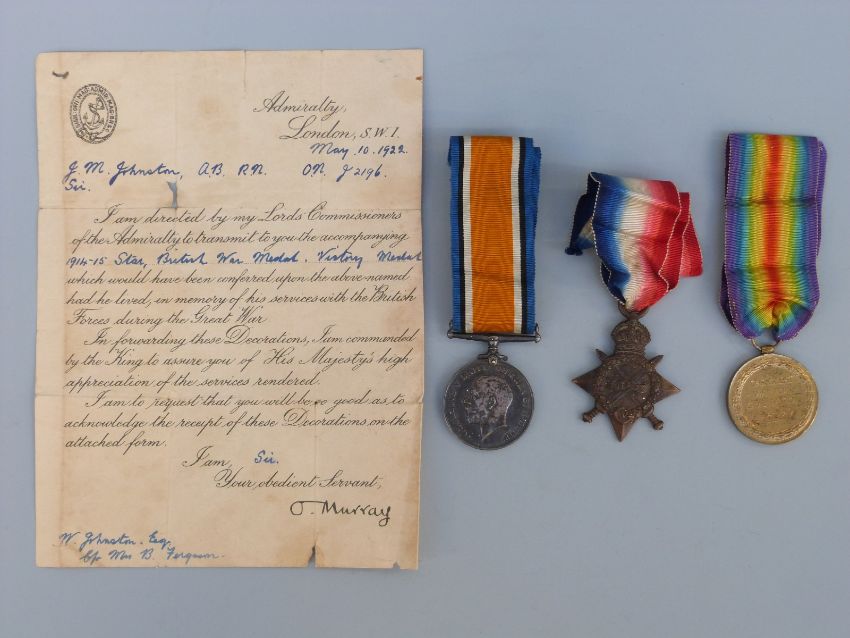 Admiralty,
London, S.W.1.
May. 10. 1922.
J. M. Johnston, A.B. R.N. O.N. J 2196.
Sir.
I am directed by my Lords Commissioners
of the Admiralty to transmit to you the accompanying
1914-15 Star, British War Medal. Victory Medal
which would have been conferred upon the above-named
had he lived, in memory of his services with the British
Forces during the Great War
In forwarding these Decorations, I am commanded
by the King to assure you of His Majesty's high
appreciation of the services rendered.
I am to request that you will be so good as to
acknowledge the receipt of these Decorations on the
attached form.
I am, Sir.
Your obedient Servant,
O. Murray
W. Johnston. Esq.
c/o Mrs B. Ferguson.